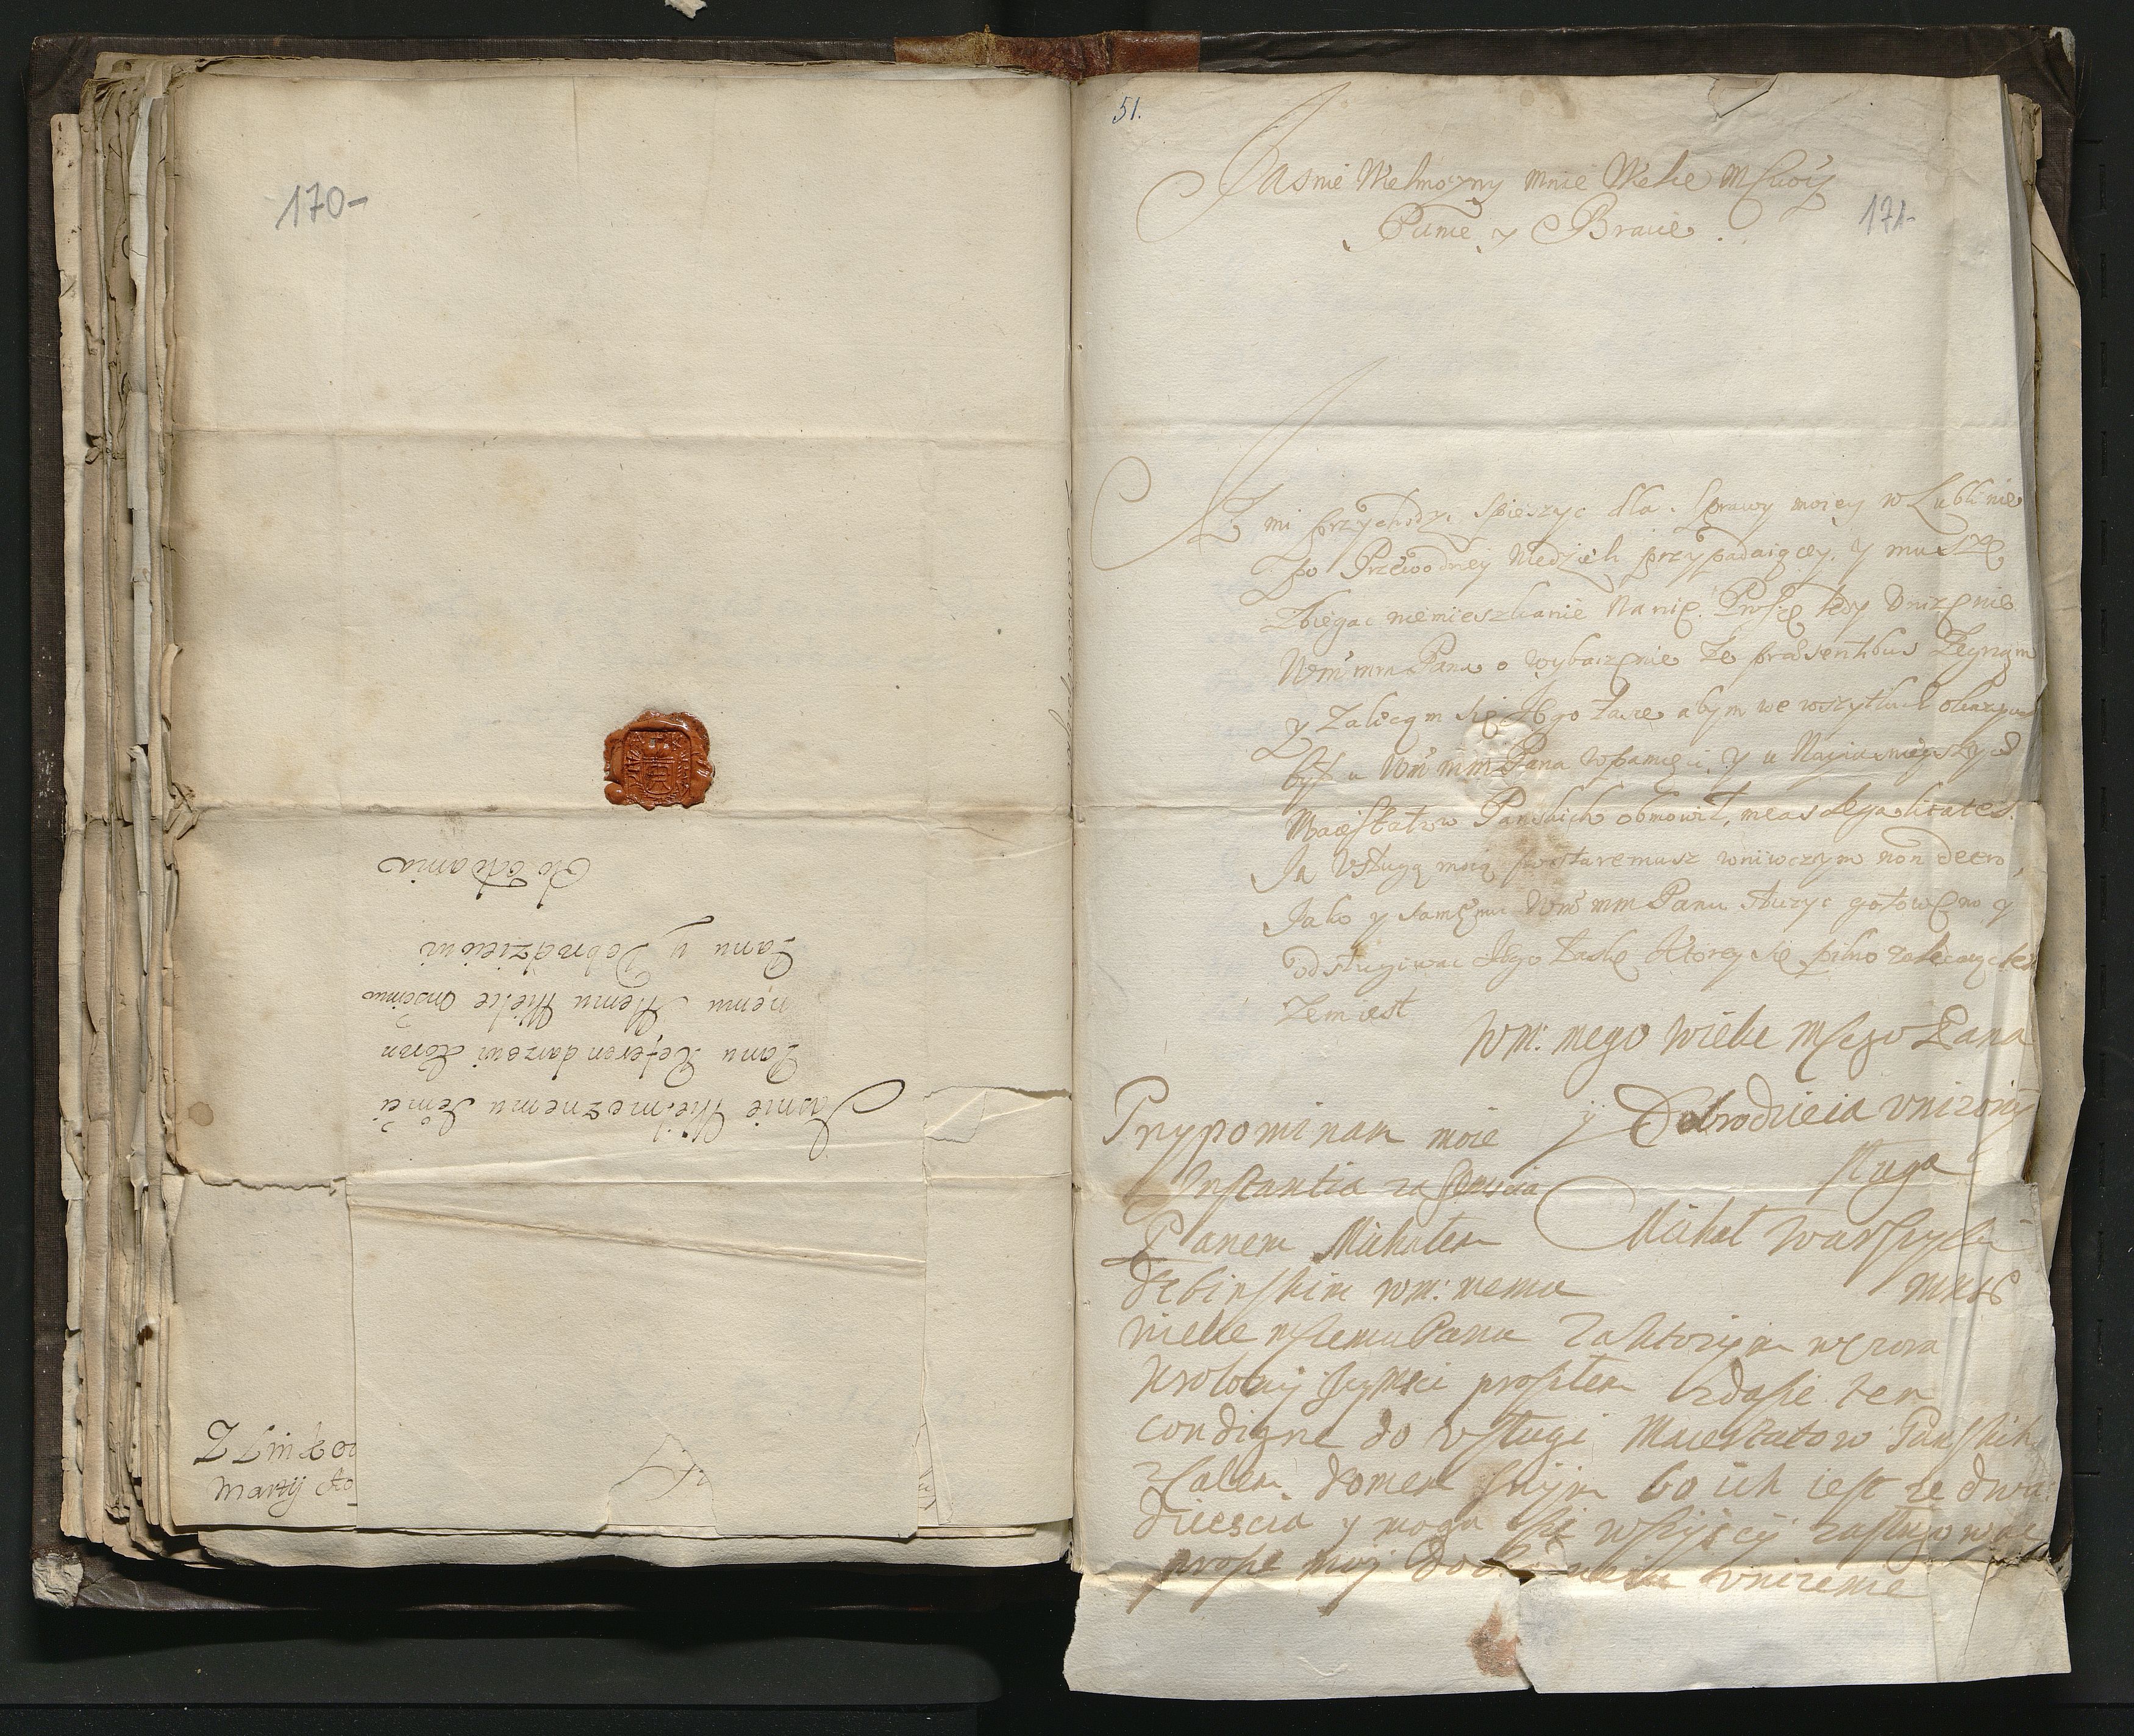 170-
Jasnie Wielmoznemu Jemci
Panu Referendarzowi Koron
nemu Memu Wielce Mosciwemu
Panu y Dobrodzieiowi
do oddania
Z Pink
Martij
51.
171-
Jasnie Wielmozny mnie Wielce Msciwy
Panie y Bracie.
Iz mi przychodzi spieszyc dla sprawy moiey w Lublinie
po Przewodney Niedzieli przypadaiącey, y muszę
Zbiegac niemieszkanie na nię. Proszę tedy Vnizęnie
Wm mm Pana o wybaczęnie Ze praesentibus Zegnąm
y Zalecąm się Jego Łasce abym we wszytkich okazyach
był u Wm mm Pana w pamięci, y u Nayiasnieyszych
Maiestatow Panskich obmowił, meas legalitates.
Ia Vsługą moią postaremusz wniwczym non deero,
Iako y samęmu Wm mm Panu słuzyc gotowęm y
odsługiwac Jego Łaskę Ktorey się pilno zalecaąc
Zem iest
Wm: mego Wielce Mscgo Pana
y Dobrodzieia vnizony
sługa
Michał Warszycki
Prypominam moie
Instantia za
Panem Michałem
Dębinskim wm: memu
wielce mscemu Panu Za ktorym
Krolowy Jeymsci prosiłem zda sie ten
condigne do vsługi Maiestatow Panskich
domem swym bo ich iest ze dwa
dziescia y moga sie wszyscy zasługowac
prosze moy vnizenie